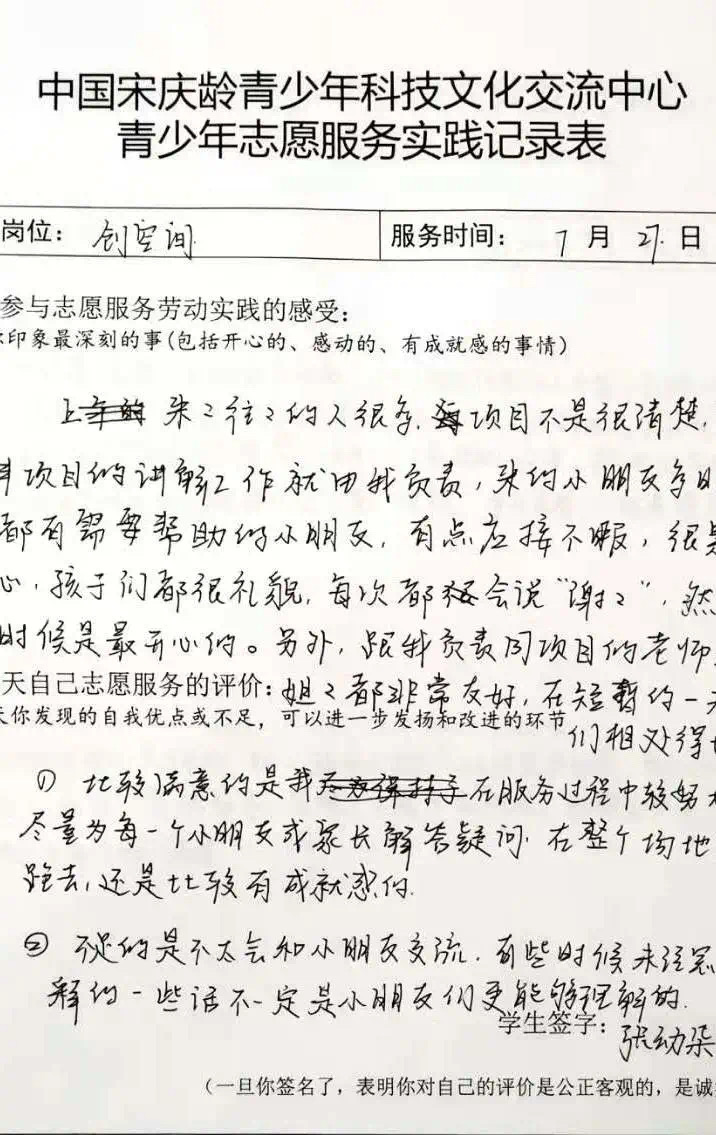 中国宋庆龄青少年科技文化交流中心
青少年志愿服务实践记录表
岗位： 创空间 服务时间： 7 月 27 日
参与志愿服务劳动实践的感受：
印象最深刻的事(包括开心的、感动的、有成就感的事情)
来々往々的人很多，项目不是很清楚，
项目的讲解工作就由我负责，来的小朋友多
都有需要帮助的小朋友，有点应接不暇，很
心，孩子们都很礼貌，每次都会说“谢々”，然
时候是最开心的。另外，跟我负责同项目的老师
天自己志愿服务的评价：姐々都非常友好，在短暂的一
你发现的自我优点或不足，可以进一步发扬和改进的环节
们相处得
① 比较满意的是我在服务过程中较努
尽量为每一个小朋友或家长解答疑问，在整个场地
跑去，还是比较有成就感的.
② 不足的是不太会和小朋友交流，有些时候
释的一些话不一定是小朋友们更能够理解的.
学生签字：
（一旦你签名了，表明你对自己的评价是公正客观的，是诚